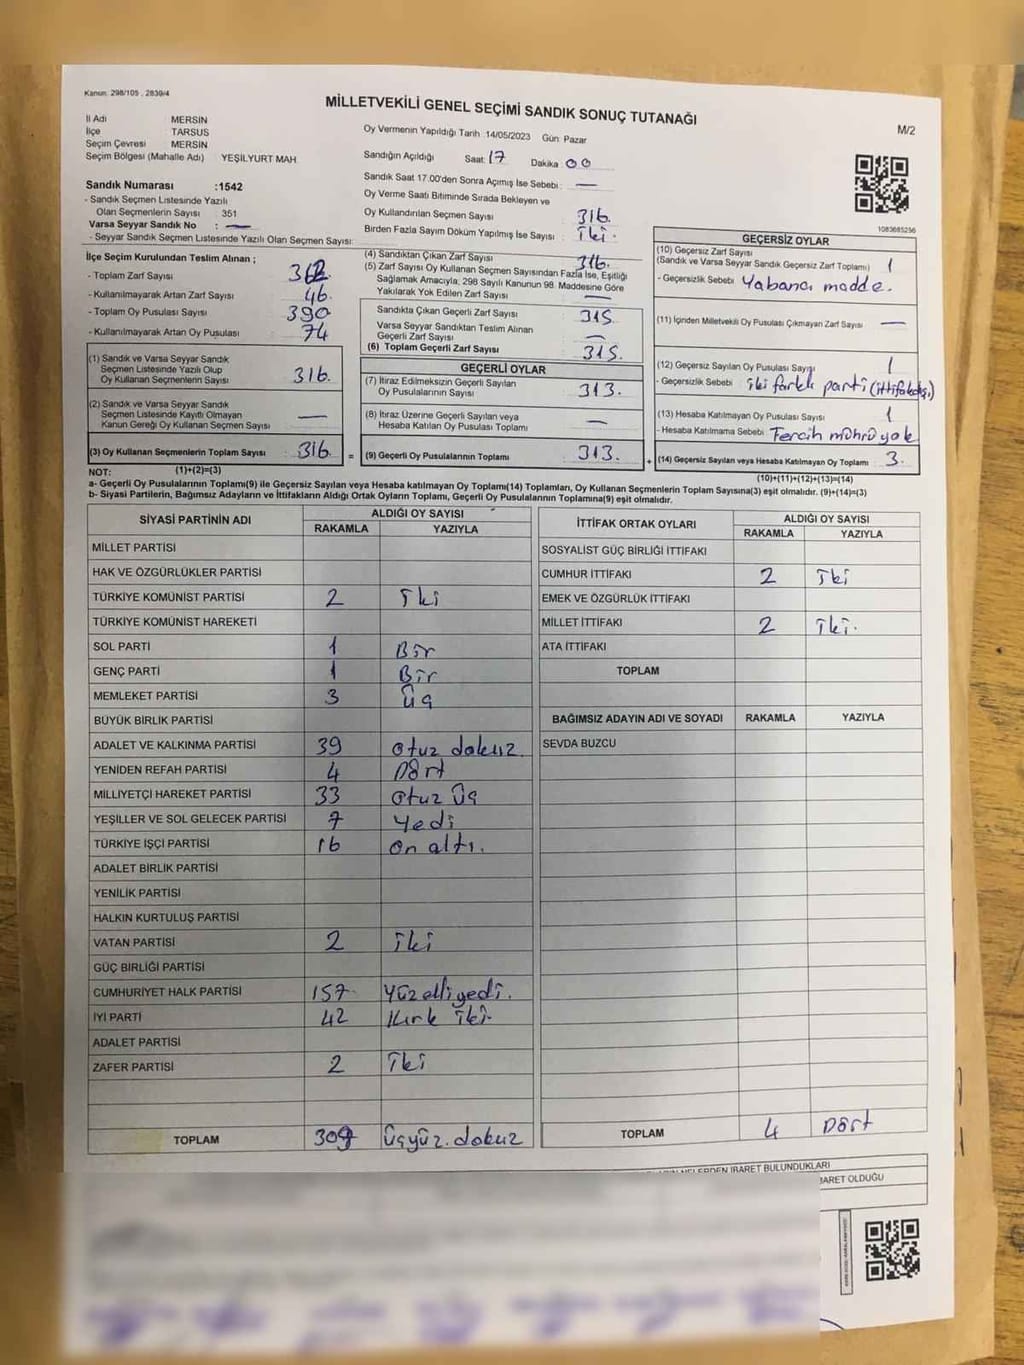 Kanun: 298/105 , 2839/4
MİLLETVEKİLİ GENEL SEÇİMİ SANDIK SONUÇ TUTANAĞI
M/2
İl Adı MERSIN
İlçe TARSUS
Seçim Çevresi MERSIN
Seçim Bölgesi (Mahalle Adı) YEŞİLYURT MAH.
Sandık Numarası :1542
- Sandık Seçmen Listesinde Yazılı
Olan Seçmenlerin Sayısı : 351
Varsa Seyyar Sandık No : —
- Seyyar Sandık Seçmen Listesinde Yazılı Olan Seçmen Sayısı:
Oy Vermenin Yapıldığı Tarih :14/05/2023 Gün: Pazar
Sandığın Açıldığı Saat: 17 Dakika 00
Sandık Saat 17.00'den Sonra Açılmış İse Sebebi : —
Oy Verme Saati Bitiminde Sırada Bekleyen ve
Oy Kullandırılan Seçmen Sayısı 316.
Birden Fazla Sayım Döküm Yapılmış İse Sayısı : İki.
1083685256
İlçe Seçim Kurulundan Teslim Alınan ;
- Toplam Zarf Sayısı
- Kullanılmayarak Artan Zarf Sayısı 46.
- Toplam Oy Pusulası Sayısı 390
- Kullanılmayarak Artan Oy Pusulası 74
(1) Sandık ve Varsa Seyyar Sandık
Seçmen Listesinde Yazılı Olup
Oy Kullanan Seçmenlerin Sayısı 316.
(2) Sandık ve Varsa Seyyar Sandık
Seçmen Listesinde Kayıtlı Olmayan
Kanun Gereği Oy Kullanan Seçmen Sayısı —
(3) Oy Kullanan Seçmenlerin Toplam Sayısı 316. =
(4) Sandıktan Çıkan Zarf Sayısı 316.
(5) Zarf Sayısı Oy Kullanan Seçmen Sayısından Fazla İse, Eşitliği
Sağlamak Amacıyla; 298 Sayılı Kanunun 98. Maddesine Göre
Yakılarak Yok Edilen Zarf Sayısı —
Sandıkta Çıkan Geçerli Zarf Sayısı 315
Varsa Seyyar Sandıktan Teslim Alınan
Geçerli Zarf Sayısı —
(6) Toplam Geçerli Zarf Sayısı 315.
GEÇERLİ OYLAR
(7) İtiraz Edilmeksizin Geçerli Sayılan
Oy Pusulalarının Sayısı 313.
(8) İtiraz Üzerine Geçerli Sayılan veya
Hesaba Katılan Oy Pusulası Toplamı —
(9) Geçerli Oy Pusulalarının Toplamı 313. +
GEÇERSİZ OYLAR
(10) Geçersiz Zarf Sayısı
(Sandık ve Varsa Seyyar Sandık Geçersiz Zarf Toplamı) 1
- Geçersizlik Sebebi: Yabancı madde.
(11) İçinden Milletvekili Oy Pusulası Çıkmayan Zarf Sayısı —
(12) Geçersiz Sayılan Oy Pusulası Sayısı 1
- Geçersizlik Sebebi iki farklı parti (ittifakdışı)
(13) Hesaba Katılmayan Oy Pusulası Sayısı 1
- Hesaba Katılmama Sebebi: Tercih mührü yok
(14) Geçersiz Sayılan veya Hesaba Katılmayan Oy Toplamı 3.
NOT: (1)+(2)=(3) (10)+(11)+(12)+(13)=(14)
a- Geçerli Oy Pusulaları Toplamı(9) ile Geçersiz Sayılan veya Hesaba Katılmayan Oy Pusulaları Toplamı(14) Toplamları, Oy Kullanan Seçmenlerin Toplam Sayısına(3) eşit olmalıdır. (9)+(14)=(3)
b- Siyasi Partilerin, Bağımsız Adayların ve İttifakların Aldığı Ortak Oyların Toplamı, Geçerli Oy Pusulalarının Toplamına(9) eşit olmalıdır.
SİYASİ PARTİNİN ADI ALDIĞI OY SAYISI
RAKAMLA YAZIYLA
MİLLET PARTİSİ
HAK VE ÖZGÜRLÜKLER PARTİSİ
TÜRKİYE KOMÜNİST PARTİSİ 2 İki
TÜRKİYE KOMÜNİST HAREKETİ
SOL PARTİ 1 Bir
GENÇ PARTİ 1 Bir
MEMLEKET PARTİSİ 3 Üç
BÜYÜK BİRLİK PARTİSİ
ADALET VE KALKINMA PARTİSİ 39 Otuz dokuz.
YENİDEN REFAH PARTİSİ 4 Dört
MİLLİYETÇİ HAREKET PARTİSİ 33 Otuz Üç
YEŞİLLER VE SOL GELECEK PARTİSİ 7 Yedi
TÜRKİYE İŞÇİ PARTİSİ 16 On altı.
ADALET BİRLİK PARTİSİ
YENİLİK PARTİSİ
HALKIN KURTULUŞ PARTİSİ
VATAN PARTİSİ 2 İki
GÜÇ BİRLİĞİ PARTİSİ
CUMHURİYET HALK PARTİSİ 157. Yüzelliyedi.
İYİ PARTİ 42 Kırk İki.
ADALET PARTİSİ
ZAFER PARTİSİ 2 İki
TOPLAM 309 Üçyüz.dokuz
İTTİFAK ORTAK OYLARI ALDIĞI OY SAYISI
RAKAMLA YAZIYLA
SOSYALİST GÜÇ BİRLİĞİ İTTİFAKI
CUMHUR İTTİFAKI 2 İki
EMEK VE ÖZGÜRLÜK İTTİFAKI
MİLLET İTTİFAKI 2 İki.
ATA İTTİFAKI
TOPLAM
BAĞIMSIZ ADAYIN ADI VE SOYADI RAKAMLA YAZIYLA
SEVDA BUZCU
TOPLAM 4 Dört
NELERDEN İBARET BULUNDUKLARI
İBARET OLDUĞU